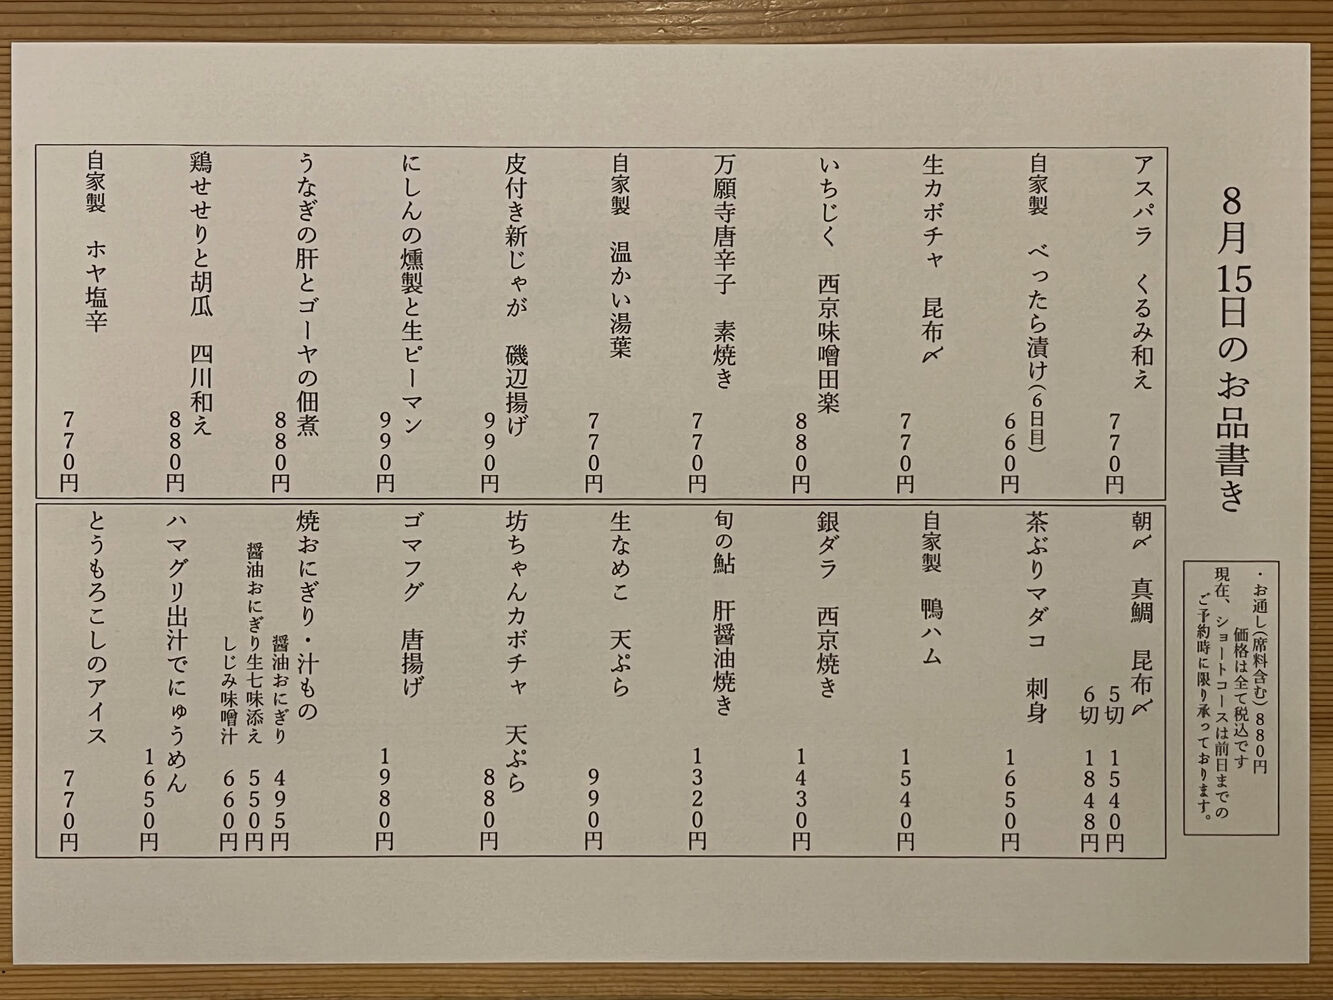 8月15日のお品書き
・お通し(席料含む)880円
価格は全て税込です
現在、ショートコースは前日までの
ご予約時に限り承っております。
アスパラ　くるみ和え
770円
自家製　べったら漬け(6日目)
660円
生カボチャ　昆布〆
770円
いちじく　西京味噌田楽
880円
万願寺唐辛子　素焼き
770円
自家製　温かい湯葉
770円
皮付き新じゃが　磯辺揚げ
990円
にしんの燻製と生ピーマン
990円
うなぎの肝とゴーヤの佃煮
880円
鶏せせりと胡瓜　四川和え
880円
自家製　ホヤ塩辛
770円
朝〆　真鯛　昆布〆
5切　1540円
6切　1848円
茶ぶりマダコ　刺身
1650円
自家製　鴨ハム
1540円
銀ダラ　西京焼き
1430円
旬の鮎　肝醤油焼き
1320円
生なめこ　天ぷら
990円
坊ちゃんカボチャ　天ぷら
880円
ゴマフグ　唐揚げ
1980円
焼おにぎり・汁もの
醤油おにぎり　495円
醤油おにぎり生七味添え　550円
しじみ味噌汁　660円
ハマグリ出汁でにゅうめん
1650円
とうもろこしのアイス
770円